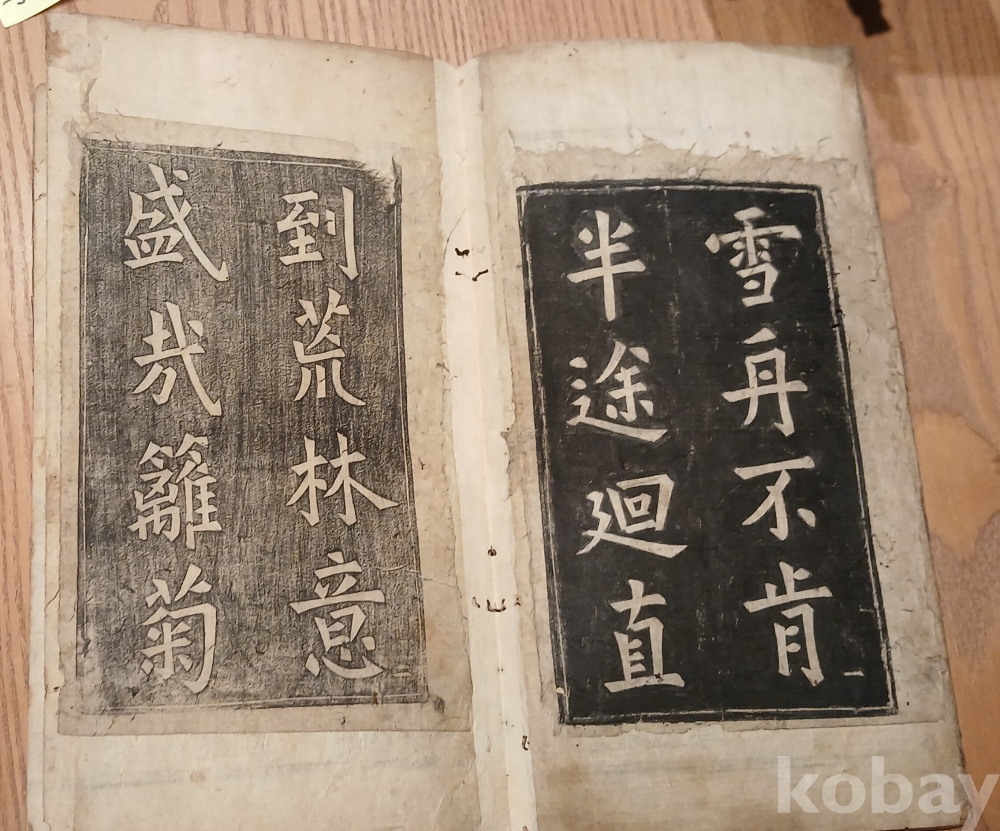 雪舟不肯
半途廻直
到荒林意
盛哉籬菊
kobay